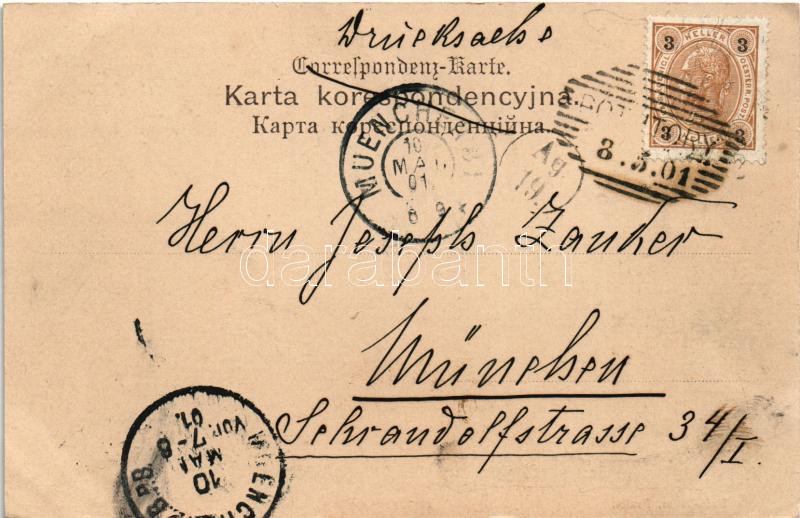 Drucksache
Correspondenz-Karte.
Karta korespondencyjna.
Карта кореспонденційна.
3 HELLER 3
3 3
8.5.01
MUENCHEN
10
MAI
01.
8 9
Ag
19.
Herrn Joseph Zauker
darabanth
München
Schrandolfstrasse 34/I.
MUENCHEN
10
MAI
VOR. 7-8
01.